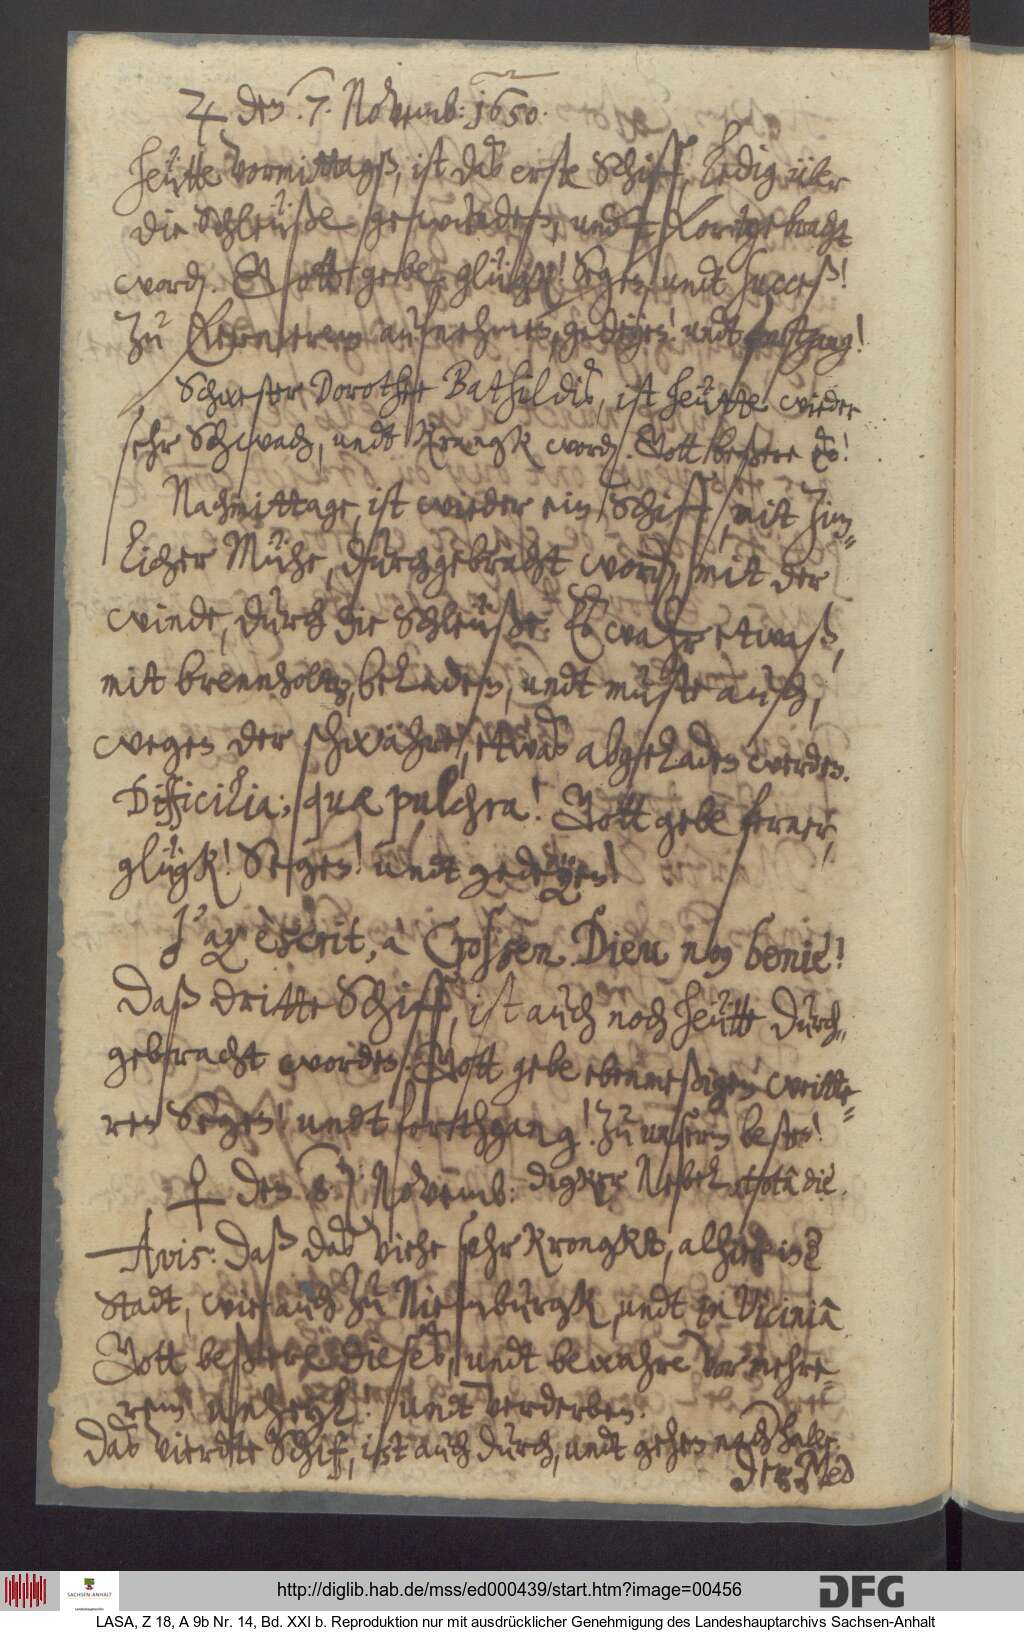 ♃ den 7. Novemb: 1650.
Heütte Vormittagß, ist das erste Schiff, ledig über
die Schleüße gewunden, undt fortgebracht
word. Gott gebe glügk! Segen undt success!
Zu fernerem aufnehmen, gedeyen! undt fortgang!
Schwester Dorothee Bathildis, ist heütte wieder
sehr Schwach, undt Krangk word. Gott beßere es!
Nachmittage, ist wieder ein Schiff, mit Zim-
licher Mühe, durchgebracht word, mit der
winde, durch die Schleüße. Es wahr etwaß,
mit brennholtz, beladen, undt muste auch,
wegen der schwähre, etwas abgeladen werden.
Difficilia; quæ pulchra! Gott gebe ferner,
glügk! Segen! undt gedeyen!
J'ay escrit, a Crossen. Dieu noy benie!
Daß dritte Schiff, ist auch noch heütte durch-
gebracht worden. Gott gebe ebenmeßigen weitte-
ren Segen! undt forthgang! Zu unserm besten!
♀ den 8. Novemb: digker Nebel, tota die.
Avis: Daß das Viehe sehr Krangkt, alhier in
Stadt, wie auch Zu Niemburgk, undt in Viciniâ
Gott beßere dieses, undt bewahre Vor mehre
rem unheyl! undt Verderben.
Das vierdte Schif, ist auch durch, undt gehen nach halle.